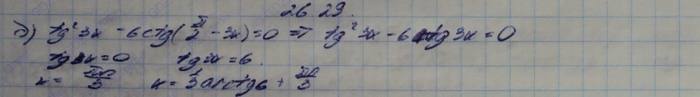 26.29.
д) tg² 3x - 6ctg(π/2 - 3x) = 0 ⇒ tg² 3x - 6 tg 3x = 0
tg 3x = 0 tg 3x = 6
x = πn/3 x = 1/3 arctg 6 + πn/3